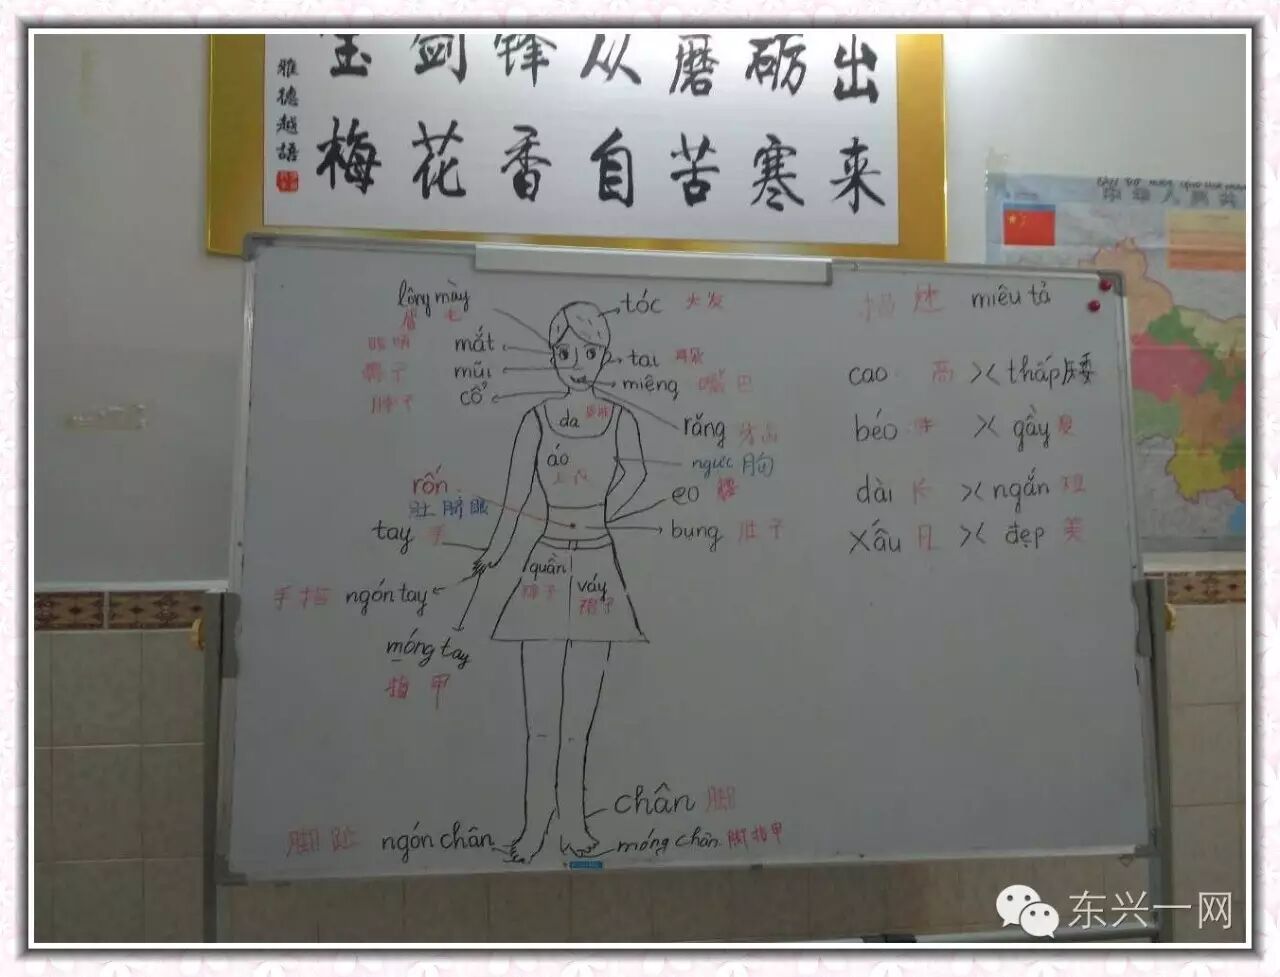 宝剑锋从磨砺出
梅花香自苦寒来
雅德越語
lông mày
眉毛
tóc 头发
mắt 眼睛
tai 耳朵
mũi 鼻子
miệng 嘴巴
cổ 脖子
da 皮肤
răng 牙齿
áo 上衣
ngực 胸
rốn
肚脐眼
eo 腰
tay 手
bụng 肚子
quần
裤子
váy
裙子
手指 ngón tay
móng tay
指甲
chân 脚
脚趾 ngón chân
móng chân 脚指甲
描述 miêu tả
cao 高 >< thấp 矮
béo 胖 >< gầy 瘦
dài 长 >< ngắn 短
xấu 丑 >< đẹp 美
东兴一网